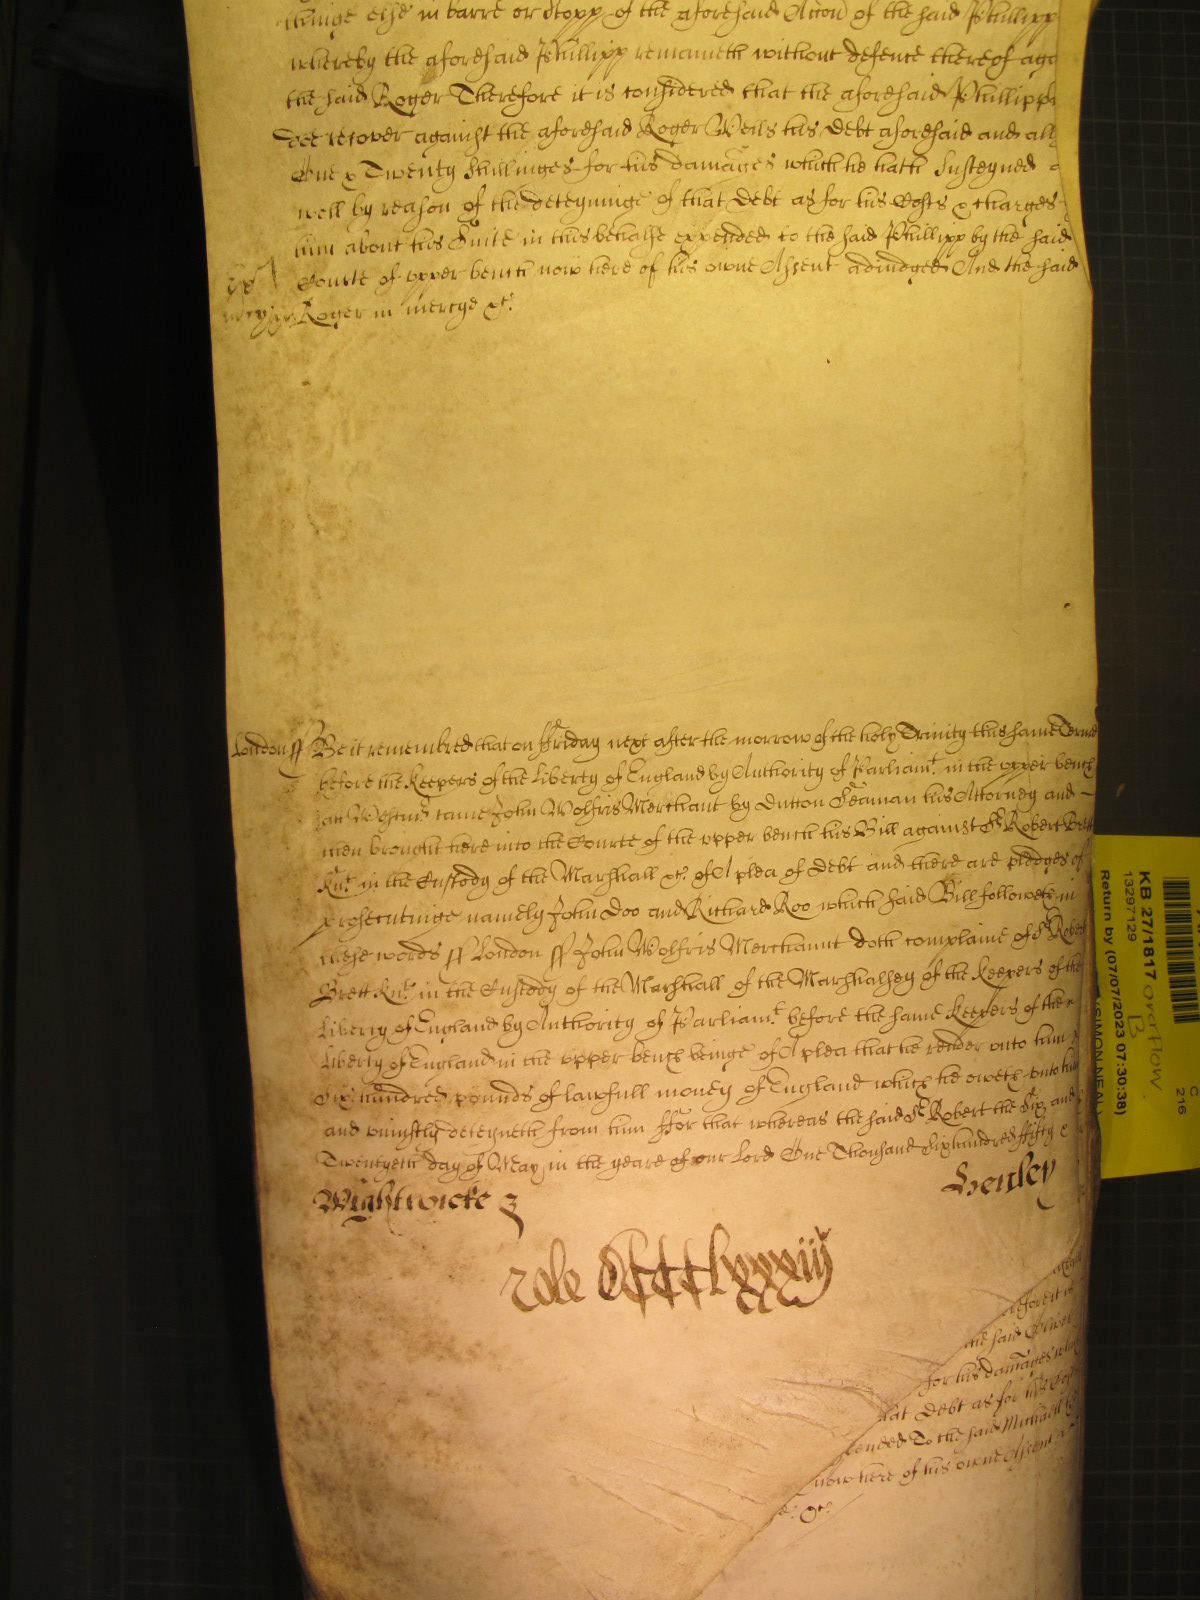 thinge else in barre or stopp of the aforesaid Accon of the said Phillipp
whereby the aforesaid Phillipp remaineth without defence thereof aga
the said Roger Therefore it is considered that the aforesaid Phillipp
doe recover against the aforesaid Roger Weils his debt aforesaid and all
One & Twenty Shillinges for his damages which he hath susteyned
well by reason of the deteyninge of that debt as for his Costs & charges
him about his Suite in this behalfe expended to the said Phillipp by the said
Courte of upper bench now here of his owne Assent adiudged And the said
Roger in mercye &c.
London ss Be it remembred that on Friday next after the morrow of the holy Trinity this same Terme
before the Keepers of the Liberty of England by Authority of Parliamt. in the upper bench
att Westmr came John Wolfris Merchant by Dutton Seaman his Attorney and
then brought here into the Courte of the upper bench his Bill against Sr Robert Brett
Knt. in the Custody of the Marshall &c. of A plea of debt and there are pledges of
prosecutinge namely John Doo and Richard Roo which said Bill followeth in
these words ss London ss John Wolfris Merchannt doth complaine of Sr Robert
Brett Knt. in the Custody of the Marshall of the Marshalsey of the Keepers of the
Liberty of England by Authority of Parliamt. before the same Keepers of the
Liberty of England in the upper bench beinge of A plea that he render unto him
Six hundred pounds of lawfull money of England which he oweth unto him
and uniustly deteyneth from him For that whereas the said Sr Robert the Six and
Twentyeth day of May in the yeare of our Lord One Thousand Sixhundred fifty &
Wightwicke Henley
role CCCClxxxiij
refore it is
the said
for his damages
hat debt as for his Cost
pended To the said Michaell
now here of his owne Assent
&c.
KB 27/1817 overflow
B
13297129
Return by (07/07/2023 07:30:38)
(SIMON NEAL)
C
216